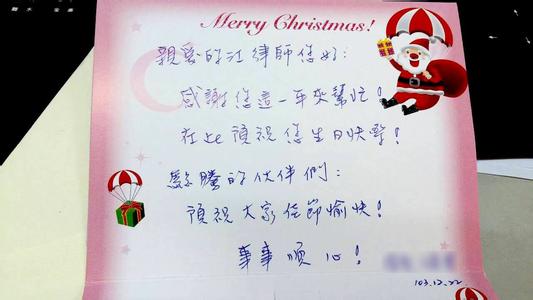 Merry Christmas!
親愛的江律師您好：
感謝您這一年來幫忙！
在此預祝您生日快樂！
騰的伙伴們：
預祝大家佳節愉快！
事事順心！
103.12.22